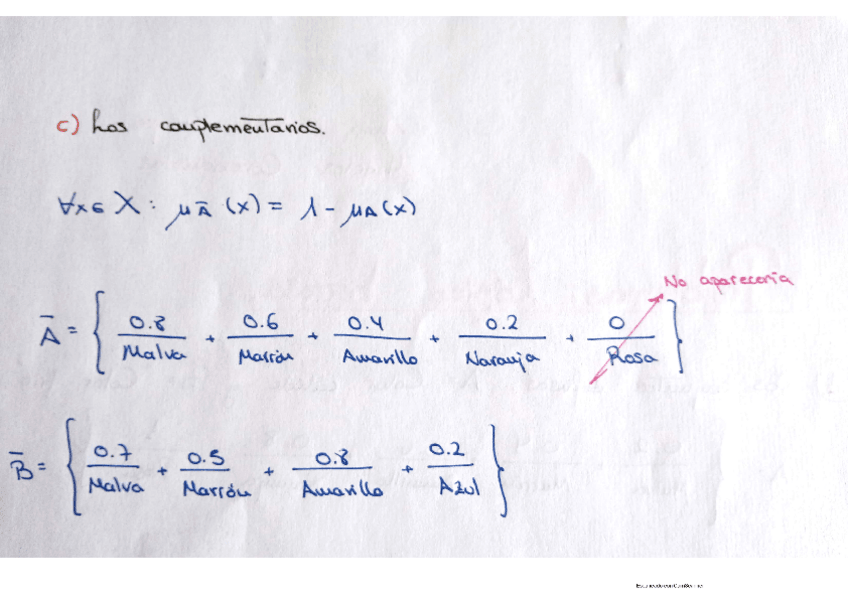 c) Los complementarios.
∀x∈X: μĀ(x) = 1 - μA(x)
No aparecería
Ā = { 0.8/Malva + 0.6/Marrón + 0.4/Amarillo + 0.2/Naranja + 0/Rosa }
B̄ = { 0.7/Malva + 0.5/Marrón + 0.8/Amarillo + 0.2/Azul }
Escaneado con CamScanner